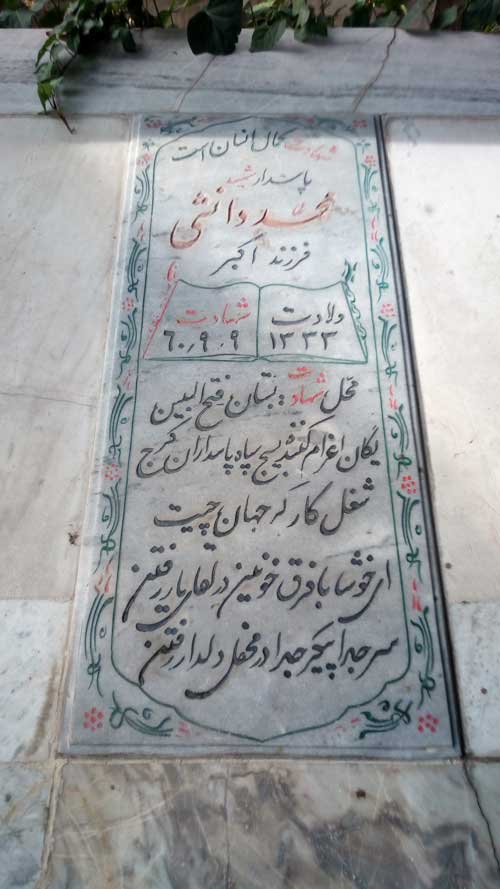 شهادت کمال انسان است
پاسدار شهید
محمد دانشی
فرزند اکبر
ولادت
۱۳۳۳
شهادت
۶۰٫۹٫۹
محل شهادت: بستان فتح المبین
یگان اعزام کننده بسیج سپاه پاسداران کرج
شغل کارگر جهان چیت
ای خوشا با فرق خونین در لقای یار رفتن
سر جدا پیکر جدا در محفل دلدار رفتن